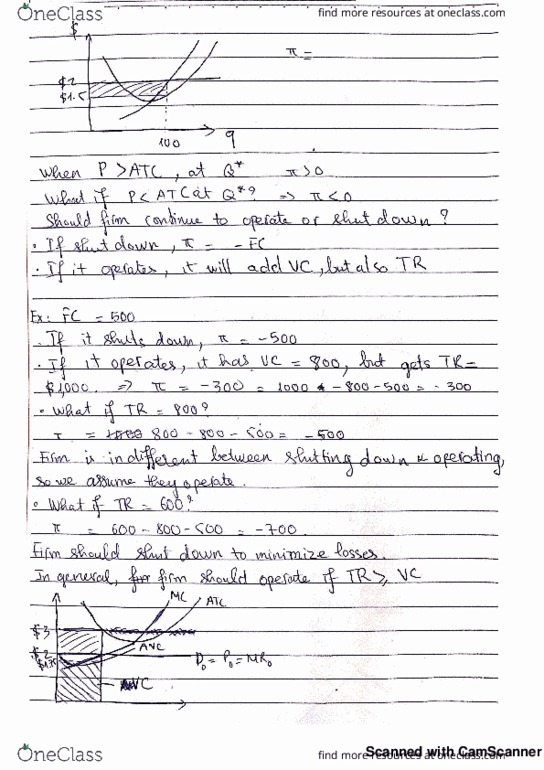 OneClass
find more resources at oneclass.com
$
π =
$2
$1.5
100
q
When P > ATC, at Q* π > 0
What if P < ATC at Q*? ⇒ π < 0
Should firm continue to operate or shut down?
· If shut down, π = - FC
· If it operates, it will add VC, but also TR
Ex: FC = 500
· If it shuts down, π = -500
· If it operates, it has VC = 800, but gets TR =
$1,000. ⇒ π = -300 = 1000 - 800 - 500 = - 300
• What if TR = 800?
π = 800 - 800 - 500 = -500
Firm is indifferent between shutting down & operating,
so we assume they operate.
• What if TR = 600?
π = 600 - 800 - 500 = -700.
Firm should shut down to minimize losses.
In general, firm should operate if TR ≥ VC
MC ATC
$3
AVC
$2
D₀ = P₀ = MR₀
VC
OneClass
find more resources at oneclass.com
Scanned with CamScanner